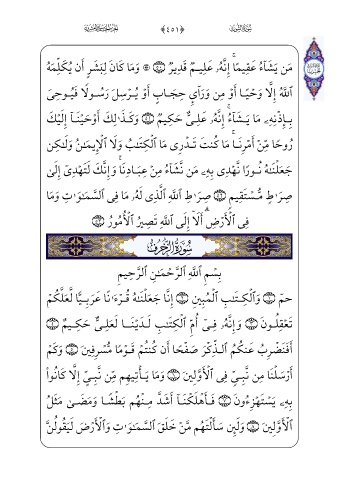 سُورَةُ الشُّورَىٰ ﴿٤٥١﴾ الجزء الخامس والعشرون
مَن يَشَآءُ عَقِيمًا ۚ إِنَّهُۥ عَلِيمٌ قَدِيرٌ ﴿٥٠﴾ ۞ وَمَا كَانَ لِبَشَرٍ أَن يُكَلِّمَهُ
ٱللَّهُ إِلَّا وَحْيًا أَوْ مِن وَرَآئِ حِجَابٍ أَوْ يُرْسِلَ رَسُولًا فَيُوحِىَ
بِإِذْنِهِۦ مَا يَشَآءُ ۚ إِنَّهُۥ عَلِىٌّ حَكِيمٌ ﴿٥١﴾ وَكَذَٰلِكَ أَوْحَيْنَآ إِلَيْكَ
رُوحًا مِّنْ أَمْرِنَا ۚ مَا كُنتَ تَدْرِى مَا ٱلْكِتَٰبُ وَلَا ٱلْإِيمَٰنُ وَلَٰكِن
جَعَلْنَٰهُ نُورًا نَّهْدِى بِهِۦ مَن نَّشَآءُ مِنْ عِبَادِنَا ۚ وَإِنَّكَ لَتَهْدِىٓ إِلَىٰ
صِرَٰطٍ مُّسْتَقِيمٍ ﴿٥٢﴾ صِرَٰطِ ٱللَّهِ ٱلَّذِى لَهُۥ مَا فِى ٱلسَّمَٰوَٰتِ وَمَا
فِى ٱلْأَرْضِ ۗ أَلَآ إِلَى ٱللَّهِ تَصِيرُ ٱلْأُمُورُ ﴿٥٣﴾
سُورَةُ الزُّخْرُفِ
بِسْمِ ٱللَّهِ ٱلرَّحْمَٰنِ ٱلرَّحِيمِ
حمٓ ﴿١﴾ وَٱلْكِتَٰبِ ٱلْمُبِينِ ﴿٢﴾ إِنَّا جَعَلْنَٰهُ قُرْءَٰنًا عَرَبِيًّا لَّعَلَّكُمْ
تَعْقِلُونَ ﴿٣﴾ وَإِنَّهُۥ فِىٓ أُمِّ ٱلْكِتَٰبِ لَدَيْنَا لَعَلِىٌّ حَكِيمٌ ﴿٤﴾
أَفَنَضْرِبُ عَنكُمُ ٱلذِّكْرَ صَفْحًا أَن كُنتُمْ قَوْمًا مُّسْرِفِينَ ﴿٥﴾ وَكَمْ
أَرْسَلْنَا مِن نَّبِىٍّ فِى ٱلْأَوَّلِينَ ﴿٦﴾ وَمَا يَأْتِيهِم مِّن نَّبِىٍّ إِلَّا كَانُوا۟
بِهِۦ يَسْتَهْزِءُونَ ﴿٧﴾ فَأَهْلَكْنَآ أَشَدَّ مِنْهُم بَطْشًا وَمَضَىٰ مَثَلُ
ٱلْأَوَّلِينَ ﴿٨﴾ وَلَئِن سَأَلْتَهُم مَّنْ خَلَقَ ٱلسَّمَٰوَٰتِ وَٱلْأَرْضَ لَيَقُولُنَّ